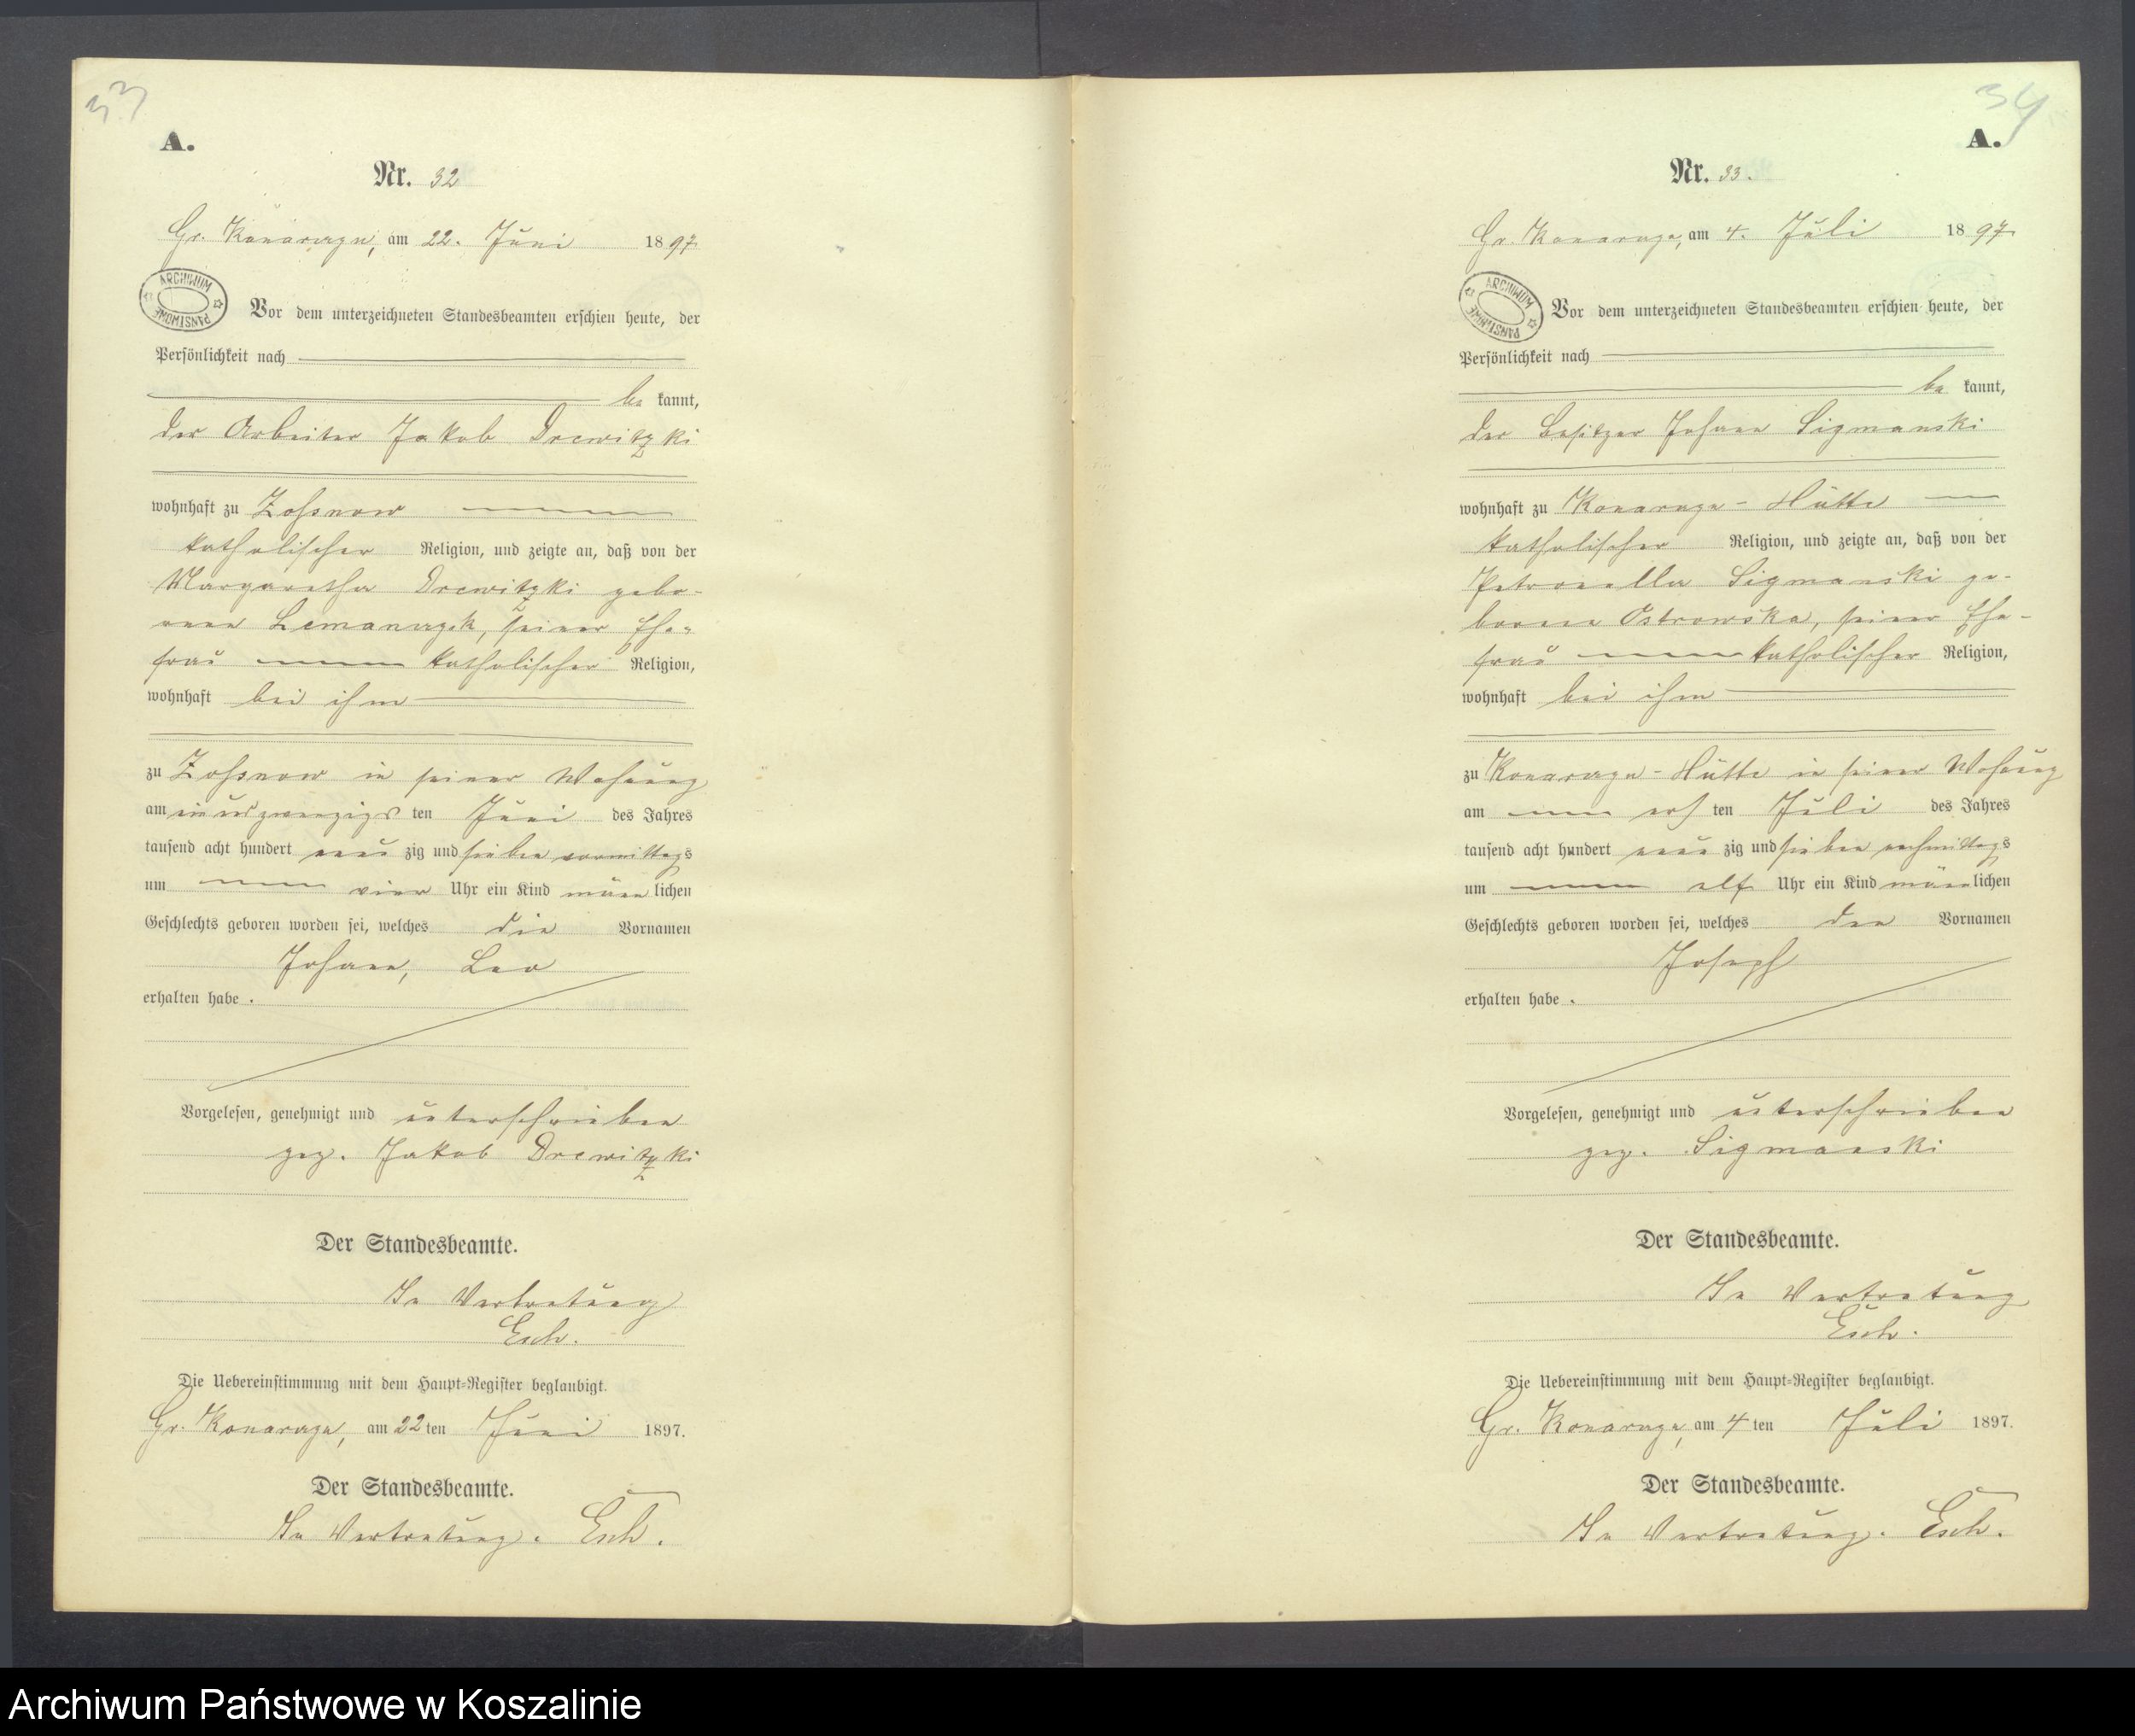 33
A.
Nr. 32
Gr. Konarczyn, am 22. Juni 1897
ARCHIWUM PAŃSTWOWE
Vor dem unterzeichneten Standesbeamten erschien heute, der
Persönlichkeit nach
be kannt,
der Arbeiter Jakob Drewitzki
wohnhaft zu Zossnow
katholischer Religion, und zeigte an, daß von der
Margaretha Drewitzki gebo-
renen Lemanczyk, seiner Ehe-
frau katholischer Religion,
wohnhaft bei ihm
zu Zossnow in seiner Wohnung
am einundzwanzigs ten Juni des Jahres
tausend acht hundert neun zig und sieben vormittags
um vier Uhr ein Kind männ lichen
Geschlechts geboren worden sei, welches die Vornamen
Johann, Leo
erhalten habe.
Vorgelesen, genehmigt und unterschrieben
gez. Jakob Drewitzki
Der Standesbeamte.
In Vertretung
Esch.
Die Uebereinstimmung mit dem Haupt-Register beglaubigt.
Gr. Konarczyn, am 22 ten Juni 1897.
Der Standesbeamte.
In Vertretung. Esch.
34
A.
Nr. 33.
Gr. Konarczyn, am 4. Juli 1897
ARCHIWUM PAŃSTWOWE
Vor dem unterzeichneten Standesbeamten erschien heute, der
Persönlichkeit nach
be kannt,
der Besitzer Johann Sigmanski
wohnhaft zu Konarczyn-Hütte
katholischer Religion, und zeigte an, daß von der
Petronella Sigmanski ge-
borene Ostrowska, seiner Ehe-
frau katholischer Religion,
wohnhaft bei ihm
zu Konarczyn-Hütte in seiner Wohnung
am ers ten Juli des Jahres
tausend acht hundert neun zig und sieben nachmittags
um elf Uhr ein Kind männ lichen
Geschlechts geboren worden sei, welches den Vornamen
Joseph
erhalten habe.
Vorgelesen, genehmigt und unterschrieben
gez. Sigmanski
Der Standesbeamte.
In Vertretung
Esch.
Die Uebereinstimmung mit dem Haupt-Register beglaubigt.
Gr. Konarczyn, am 4 ten Juli 1897.
Der Standesbeamte.
In Vertretung. Esch.
Archiwum Państwowe w Koszalinie